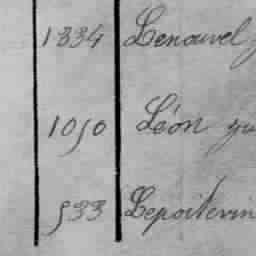 1334 Lenouvel
1050 Léon
533 Lepoitevin